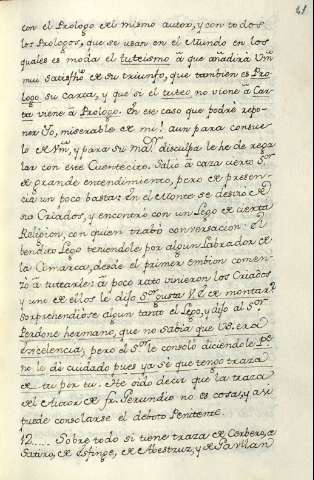 41
con el Prologo del mismo autor, y con todos
los Prologos, que se usan en el Mundo en los
quales es moda el tuteismo à que añadirà Vm̃
mui satisfho de su triunfo, que tambien es Pro-
logo su carta, y que si el tuteo no viene à Car-
ta viene à Prologo. En ese caso que podrè repo-
ner Yo, miserable de mi! aun para consue-
lo de Vm̃, y para su maʳ disculpa le he de rega-
lar con este Cuentecito. Saliò à caza cierto Sᵒʳ
de grande entendimiento, pero de presen-
cia un poco basta: En el Monte se desviò de
sus Criados, y encontrò con un Lego de cierta
Religion, con quien trabò conversacion: El
bendito Lego teniendole por algun Labrador de
la Comarca, desde el primer embion comen-
zò à tutearle: à poco rato vinieron los Criados
y uno de ellos le dijo Sᵒʳ gusta V. E. de montar?
Sorprehendiose algun tanto el Lego, y dijo al Sᵒʳ
Perdone hermano, que no sabia que V.S. era
Excelencia, pero el Sᵒʳ le consolò diciendole Pe
no le dè cuidado pues ya sè que tengo traza
de tu por tu. He oido decir que la traza
del Autor de fr. Gerundio no es cosa, y asi
puede consolarse el deboto Penitente.
12..... Sobre todo si tiene traza de Cerbero, de
Satiro, de Esfinge, de Abestruz, y de Gavilan